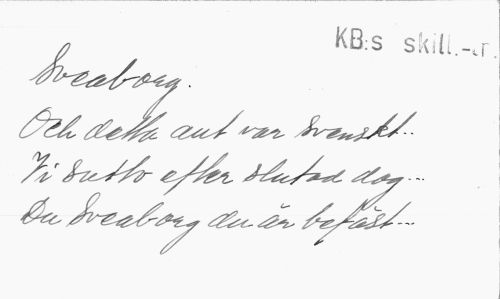 KB:s skill.-tr.
Sveaborg.
Och detta allt var svenskt..
Vi sutto efter slutad dag...
Du Sveaborg du är befäst...